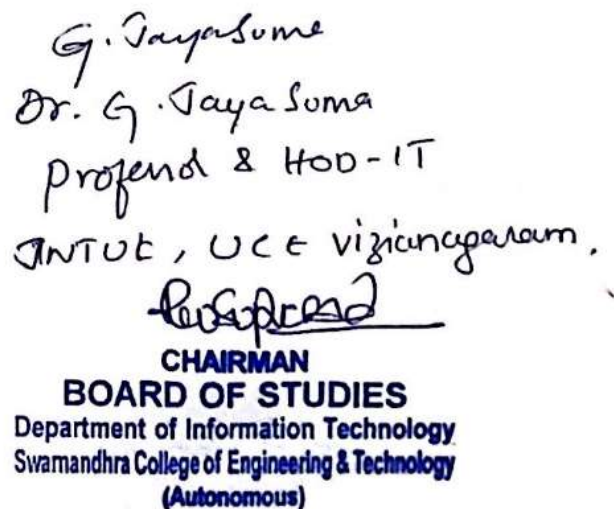 G. JayaSuma
Dr. G. Jaya Suma
Professor & HOD-IT
JNTUK, UCE Vizianagaram.
CHAIRMAN
BOARD OF STUDIES
Department of Information Technology
Swarnandhra College of Engineering & Technology
(Autonomous)